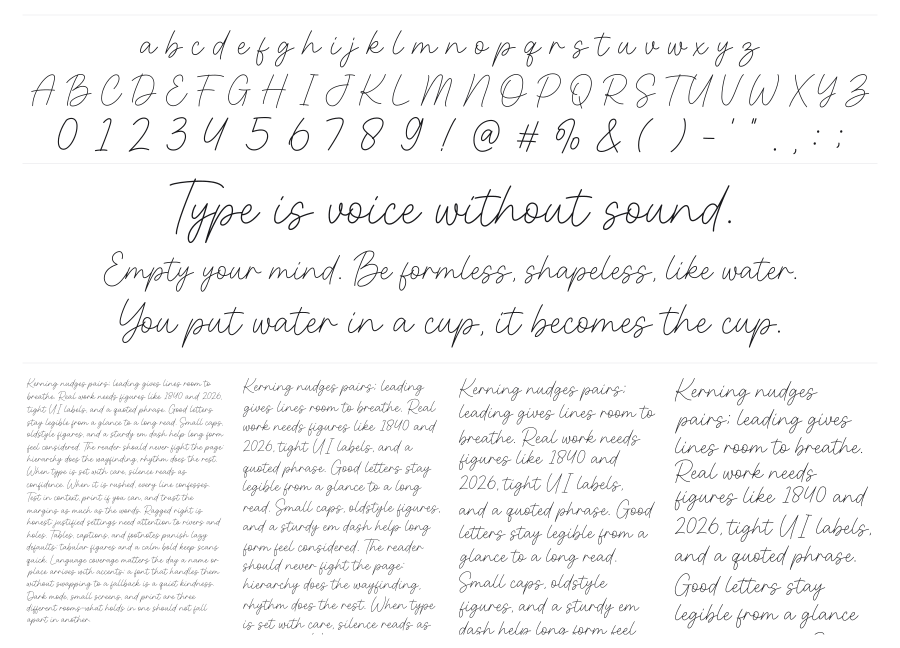 a b c d e f g h i j k l m n o p q r s t u v w x y z
A B C D E F G H I J K L M N O P Q R S T U V W X Y Z
0 1 2 3 4 5 6 7 8 9 ! @ # % & ( ) - ' " . , : ;
Type is voice without sound.
Empty your mind. Be formless, shapeless, like water.
You put water in a cup, it becomes the cup.
Kerning nudges pairs; leading gives lines room to
breathe. Real work needs figures like 1840 and 2026,
tight UI labels, and a quoted phrase. Good letters
stay legible from a glance to a long read. Small caps,
oldstyle figures, and a sturdy em dash help long form
feel considered. The reader should never fight the page;
hierarchy does the wayfinding, rhythm does the rest.
When type is set with care, silence reads as
confidence. When it is rushed, every line confesses.
Test in context, print if you can, and trust the
margins as much as the words. Ragged right is
honest; justified settings need attention to rivers and
holes. Tables, captions, and footnotes punish lazy
defaults; tabular figures and a calm bold keep scans
quick. Language coverage matters the day a name or
place arrives with accents; a font that handles them
without swapping to a fallback is a quiet kindness.
Dark mode, small screens, and print are three
different rooms-what holds in one should not fall
apart in another.
Kerning nudges pairs; leading
gives lines room to breathe. Real
work needs figures like 1840 and
2026, tight UI labels, and a
quoted phrase. Good letters stay
legible from a glance to a long
read. Small caps, oldstyle figures,
and a sturdy em dash help long
form feel considered. The reader
should never fight the page;
hierarchy does the wayfinding,
rhythm does the rest. When type
is set with care, silence reads as
Kerning nudges pairs;
leading gives lines room to
breathe. Real work needs
figures like 1840 and
2026, tight UI labels,
and a quoted phrase. Good
letters stay legible from a
glance to a long read.
Small caps, oldstyle
figures, and a sturdy em
dash help long form feel
Kerning nudges
pairs; leading gives
lines room to breathe.
Real work needs
figures like 1840 and
2026, tight UI labels,
and a quoted phrase.
Good letters stay
legible from a glance